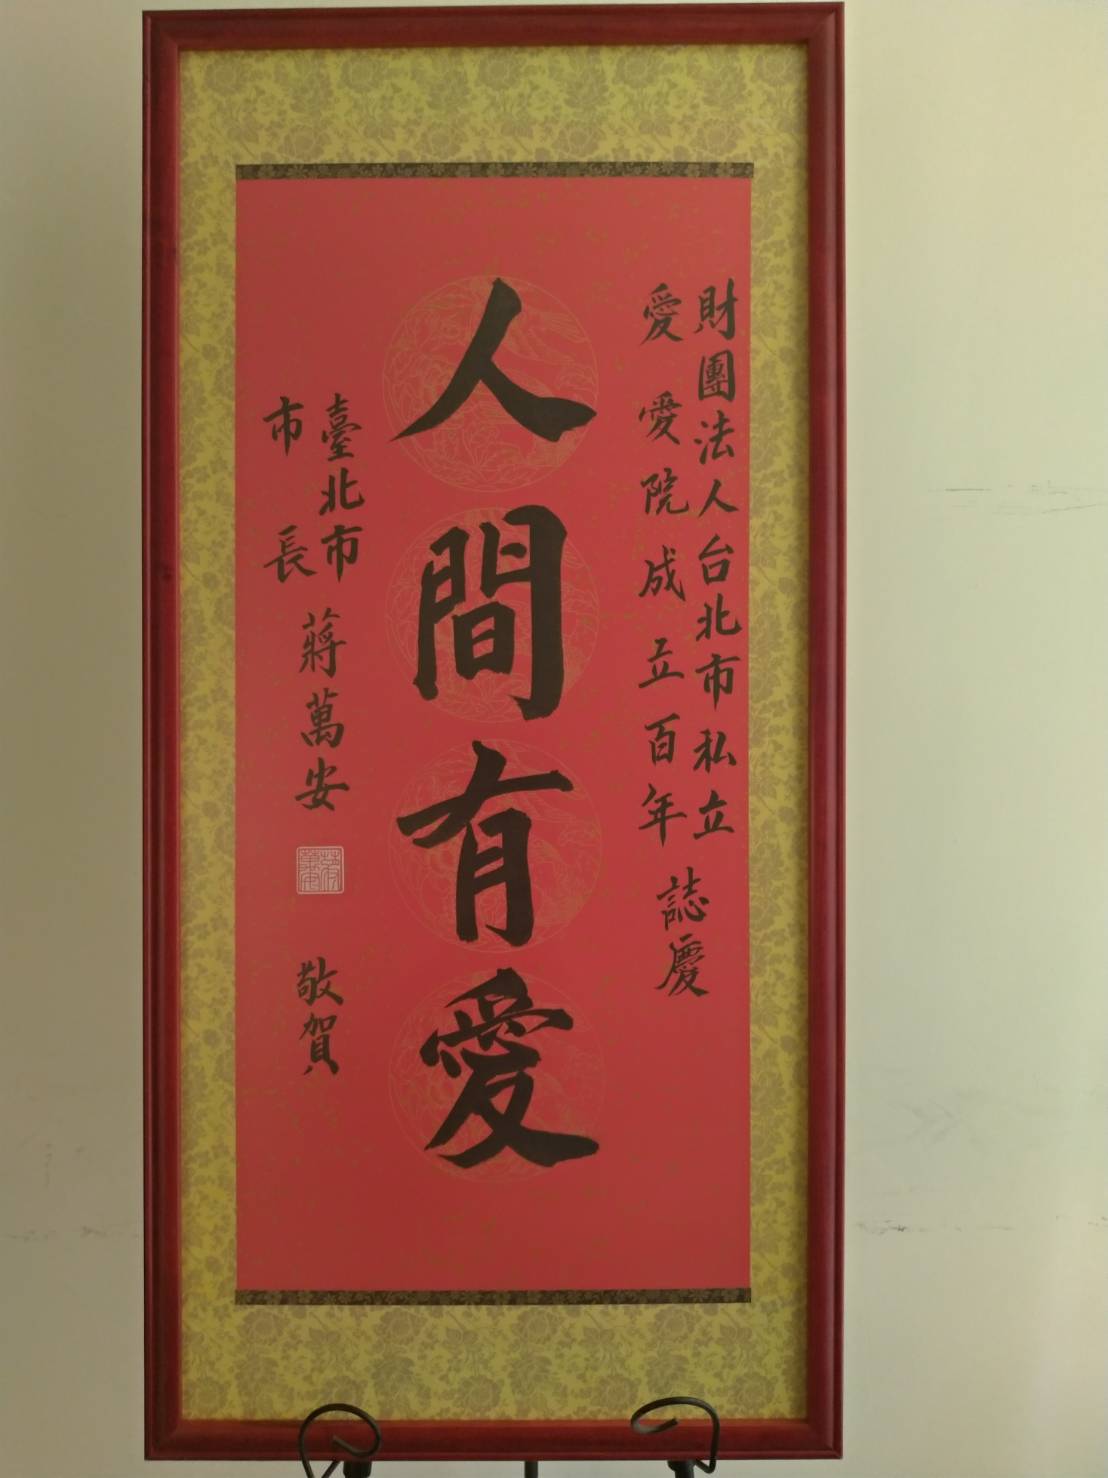 財團法人台北市私立
愛愛院成立百年
誌慶
人間有愛
臺北市
市長
蔣萬安
敬賀